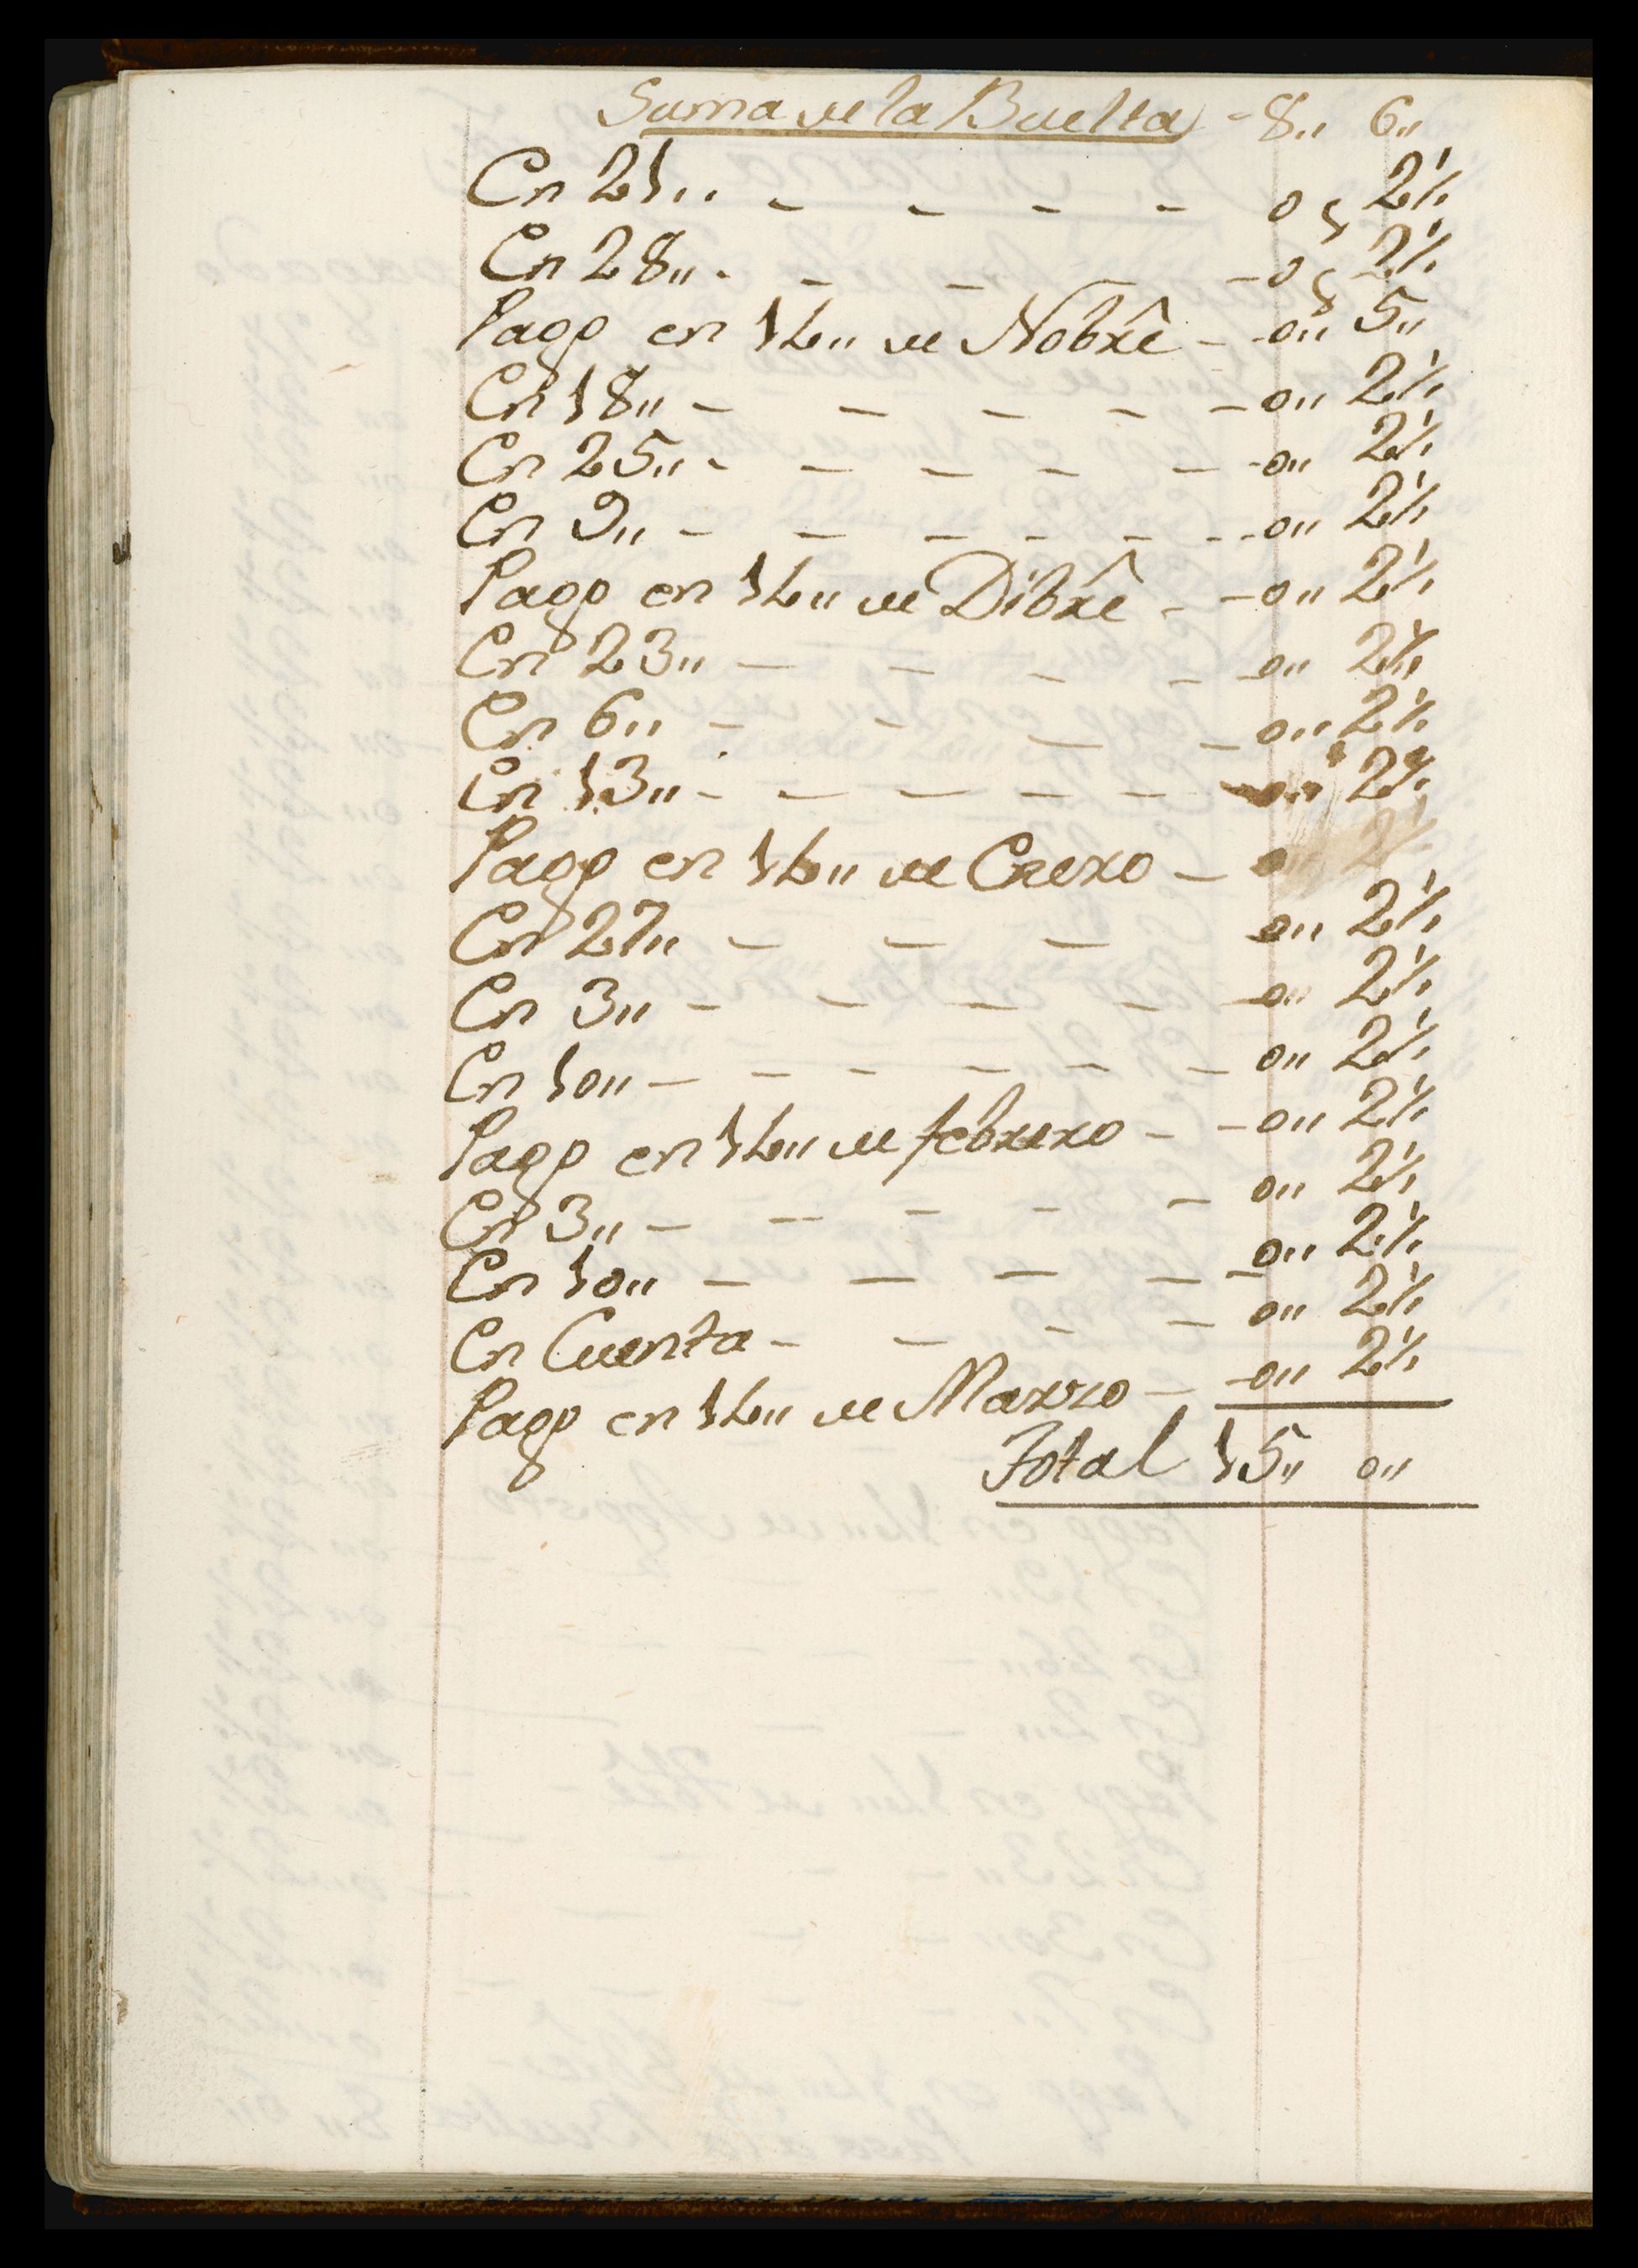 Suma de la Buelta - 8,, 6,,
En 21,, - - - - 0 ,, 2½
En 28,, - - - - 0 ,, 2½
Pago en 12,, de Nobrê - 0,, 5,,
En 18,, - - - - - 0,, 2½
En 25,, - - - - - 0,, 2½
En 9,, - - - - - - 0,, 2½
Pago en 12,, de Dibrê - - 0,, 2½
En 23,, - - - - - 0,, 2½
En 6,, - - - - 0,, 2½
En 13,, - - - - - 0,, 2½
Pago en 12,, de Enero - 0,, 2½
En 27,, - - - 0,, 2½
En 3,, - - - - - 0,, 2½
En 10,, - - - - - - 0,, 2½
Pago en 12,, de febrero - - 0,, 2½
En 3,, - - - - - 0,, 2½
En 10,, - - - - - 0,, 2½
En Cuenta - - - - 0,, 2½
Pago en 12,, de Marzo - - 0,, 2½
Total 15,, 0,,